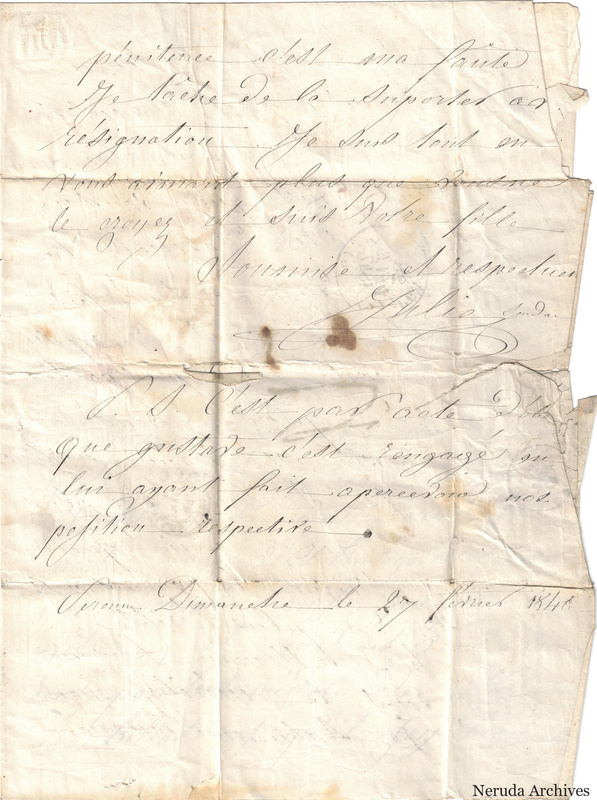 pénitence c'est ma faute
Je tâche de la suporter
résignation Je suis tout en
vous aimant plus que vous ne
le croyez et suis votre fille
soumise et respectueu
Julie
P. S C'est par acte
que gustave c'est rengagé
lui ayant fait apercevoir nos
position respective
Dimanche le 27 février 1848
Neruda Archives